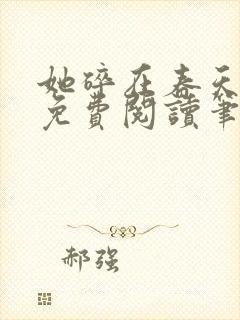 她碎在春天
免費閱讀筆
郝强